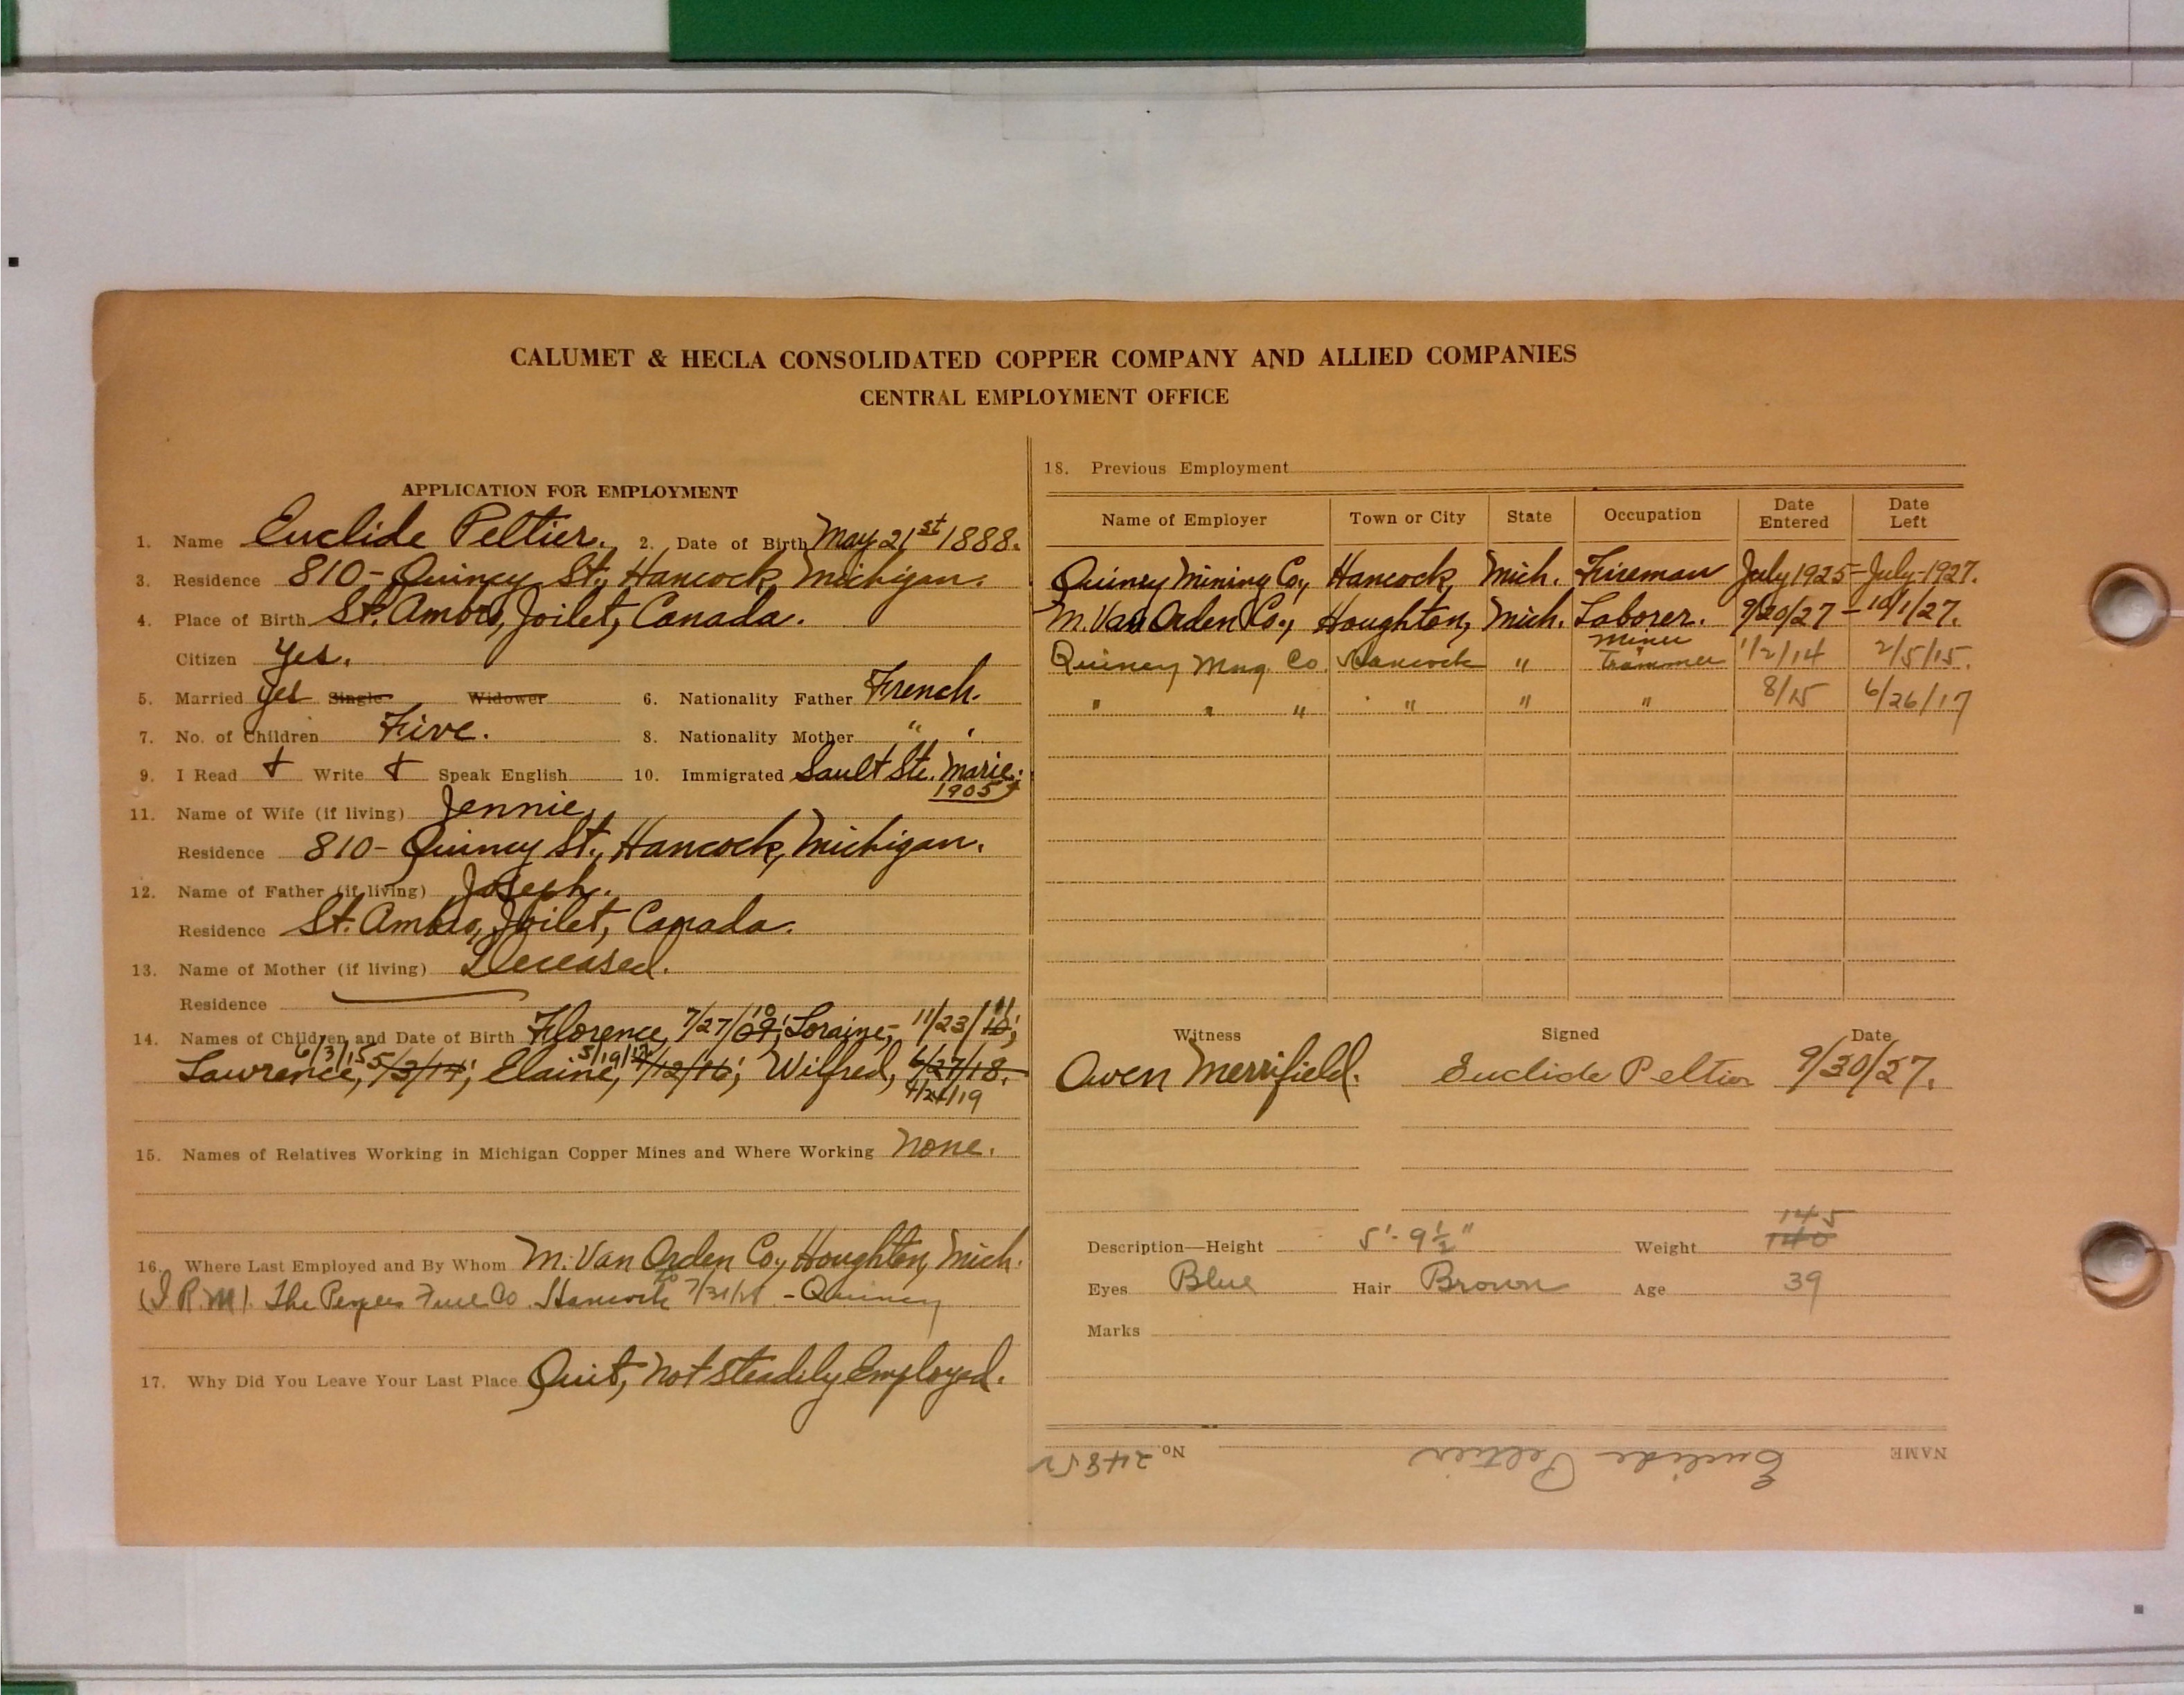 CALUMET & HECLA CONSOLIDATED COPPER COMPANY AND ALLIED COMPANIES
CENTRAL EMPLOYMENT OFFICE
APPLICATION FOR EMPLOYMENT
1. Name Euclide Peltier. 2. Date of Birth May 21st 1888.
3. Residence 810- Quincy St., Hancock, Michigan.
4. Place of Birth St. Ambro, Joilet, Canada.
Citizen Yes.
5. Married Yes Single Widower 6. Nationality Father French.
7. No. of Children Five. 8. Nationality Mother " "
9. I Read + Write + Speak English 10. Immigrated Sault Ste. Marie.
1905
11. Name of Wife (if living) Jennie.
Residence 810- Quincy St., Hancock, Michigan.
12. Name of Father (if living) Joseph.
Residence St. Ambro, Joilet, Canada.
13. Name of Mother (if living) Deceased.
Residence
14. Names of Children and Date of Birth Florence, 7/27/09 10; Loraine, 11/23/10 11;
6/3/15 5/19/17
Lawrence, 5/3/14; Elaine, 4/12/16; Wilfred, 6/27/18.
4/24/19
15. Names of Relatives Working in Michigan Copper Mines and Where Working None.
16. Where Last Employed and By Whom M. Van Orden Co., Houghton, Mich.
The Peoples Fuel Co. Hancock to - Quincy
17. Why Did You Leave Your Last Place Quit, Not Steadily Employed.
18. Previous Employment
Name of Employer Town or City State Occupation Date Entered Date Left
Quincy Mining Co., Hancock, Mich. Fireman July 1925 - July-1927.
M. Van Orden Co., Houghton, Mich. Laborer. 9/20/27 - 10/1/27.
Miner
Quincy Mng. Co. Hancock " Trammer 1/2/14 2/5/15.
" " " " " " 8/15 6/26/17
Witness Signed Date
Owen Merrifield. Euclide Peltier 9/30/27.
145
Description—Height 5'- 9 1/2" Weight 140
Eyes Blue Hair Brown Age 39
Marks
NAME Euclide Peltier No. 2485